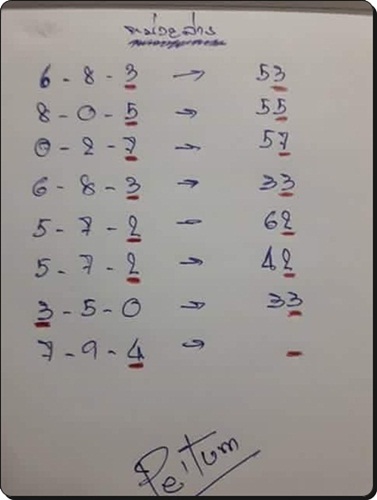 หน่วยล่าง
6 - 8 - 3 → 53
8 - 0 - 5 → 55
0 - 2 - 7 → 57
6 - 8 - 3 → 33
5 - 7 - 2 - 62
5 - 7 - 2 → 42
3 - 5 - 0 → 33
7 - 9 - 4 → -